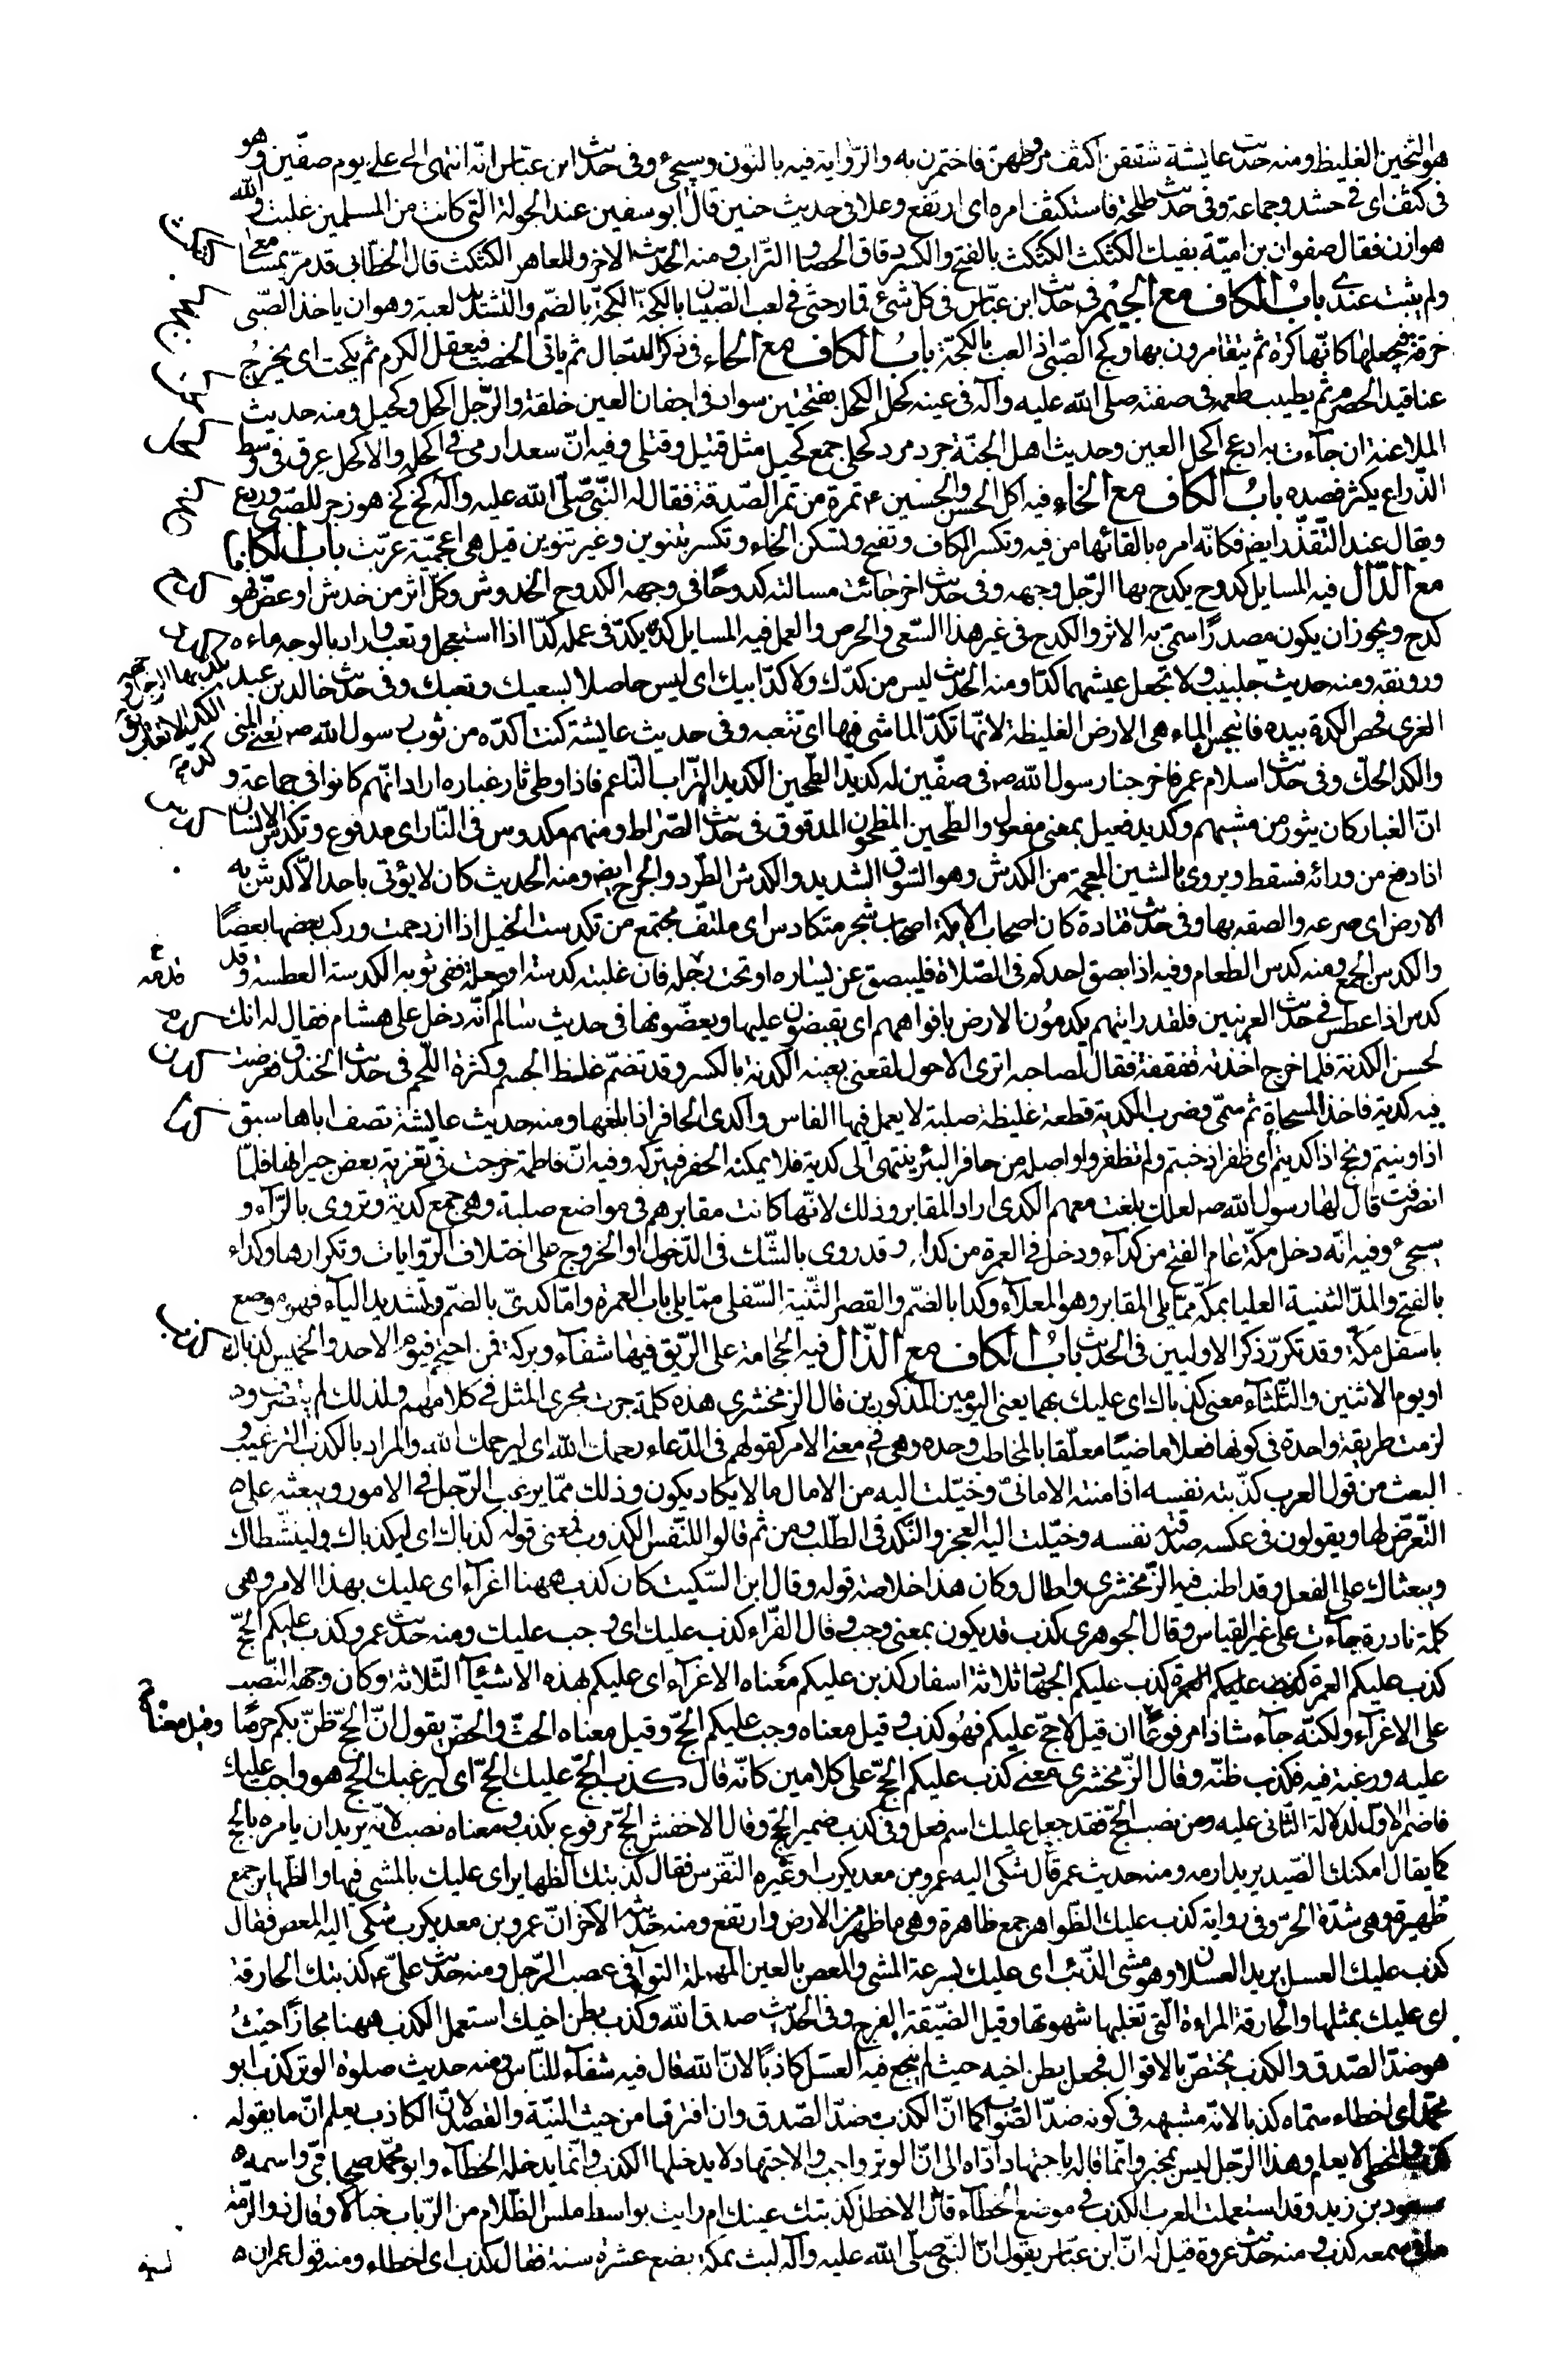 هو الثخين الغليظ ومنه حديث عايشة شققن اكثف مروطهن فاختمرن به والرواية فيه بالنون وسيجئ وفى حديث ابن عباس انه انتهى الى على يوم صفين وهو
فى كثف اى فى حشد وجماعة وفى حديث طلحة فاستكثف امره اى ارتفع وعلا فى حديث حنين قال ابو سفين عند الجولة التى كانت من المسلمين غلبت والله
هوازن فقال صفوان بن امية بفيك الكثكث الكثكث بالفتح والكسر دقاق الحصا والتراب ومنه الحديث الاخر وللعاهر الكثكث قال الخطابى قد مر بمسامعى
ولم يثبت عندى باب الكاف مع الجيم فى حديث ابن عباس فى كل شئ قمار حتى فى لعب الصبيان بالكجة الكجة بالضم والتشديد لعبة وهو ان ياخذ الصبى
خرقة فيجعلها كانها كرة ثم يتقامرون بها وكج الصبى اذا لعب بالكجة باب الكاف مع الحاء فى ذكر الدجال ثم ياتى الخصب فيعقل الكرم ثم يكحب اى يخرج
عناقيد الحصرم ثم يطيب طعمه فى صفته صلى الله عليه وآله فى عينه كحل الكحل بفتحتين سواد فى اجفان العين خلقة والرجل اكحل وكحيل ومنه حديث
الملاعنة ان جآءت به ادعج اكحل العين وحديث اهل الجنة جرد مرد كحلى جمع كحيل مثل قتيل وقتلى وفيه ان سعدا رمى فى اكحله والاكحل عرق فى وسط
الذراع يكثر فصده باب الكاف مع الخاء فيه اكل الحسن والحسين ع تمرة من تمر الصدقة فقال له النبى صلى الله عليه وآله كخ كخ هو زجر للصبى وردع
ويقال عند التقذر ايض فكانه امره بالقائها من فيه وتكسر الكاف وتفتح وتسكن الخاء وتكسر بتنوين وغير تنوين قيل هى اعجمية عربت باب الكاف
مع الدال فيه المسايل كدوح يكدح بها الرجل وجهه وفى حديث اخر جائت مسالته كدوحا فى وجهه الكدوح الخدوش وكل اثر من خدش او عض فهو
كدح ويجوز ان يكون مصدرا سمى به الاثر والكدح فى غير هذا السعى والحرص والعمل فيه المسايل كد يكد فى عمله كدا اذا استعجل وتعب واراد بالوجه ماءه
ورونقه ومنه حديث جليبيب ولا تجعل عيشهما كدا ومنه الحديث ليس من كدك ولا كد ابيك اى ليس حاصلا بسعيك وتعبك وفى حديث خالد بن عبد
العزى فحص الكدة بيده فانبجس الماء هى الارض الغليظة لانها تكد الماشى فيها اى تتعبه وفى حديث عايشة كنت اكده من ثوب رسول الله ص تعنى المنى
والكد الحك وفى حديث اسلام عمر فاخرجنا رسول الله ص فى صفين له كديد الطحين الكديد التراب الناعم فاذا وطى ثار غباره اراد انهم كانوا فى جماعة و
ان الغبار كان يثور من مشيهم وكديد فعيل بمعنى مفعول والطحين المطحون المدقوق فى حديث الصراط ومنهم مكدوس فى النار اى مدفوع وتكدس الانسان
اذا دفع من ورائه فسقط ويروى بالشين المعجمة من الكدش وهو السوق الشديد والكدش الطرد والجرح ايض ومنه الحديث كان لا يؤتى باحد الا كدش به
الارض اى صرعه والصقه بها وفى حديث قتادة كان اصحاب الايكة اصحاب شجر متكادس اى ملتف مجتمع من تكدست الخيل اذا ازدحمت وركب بعضها بعضا
والكدس الجمع ومنه كدس الطعام وفيه اذا بصق احدكم فى الصلاة فليبصق عن يساره او تحت رجله فان غلبته كدسته او سعلة ففى ثوبه الكدسة العطسة وقد
كدس اذا عطس فى حديث العرنيين فلقد رايتهم يكدمون الارض بافواههم اى يقبضون عليها ويعضونها فى حديث سالم انه دخل على هشام فقال له انك
لحسن الكدنة فلما خرج اخذته قفقفة فقال لصاحبه اترى الاحول لقعنى بعينه الكدنة بالكسر وقد تضم غلظ الجسم وكثرة اللحم فى حديث الخندق فعرضت
فيه كدية فاخذ المسحاة ثم سمى وضرب الكدية قطعة غليظة صلبة لا يعمل فيها الفاس واكدى الحافر اذا بلغها ومنه حديث عايشة تصف اباها سبق
اذ ونيتم ونجح اذ اكديتم اى ظفر اذ خبتم ولم تظفروا واصله من حافر البئر ينتهى الى كدية فلا يمكنه الحفر فيتركه وفيه ان فاطمة خرجت فى تعزية بعض جيرانها فلما
انصرفت قال لها رسول الله ص لعلك بلغت معهم الكدى اراد المقابر وذلك لانها كانت مقابرهم فى مواضع صلبة وهى جمع كدية وتروى بالرآء و
سيجئ وفيه انه دخل مكة عام الفتح من كدآء ودخل فى العمرة من كدا وقد روى بالشك فى الدخول او الخروج على اختلاف الروايات وتكرارها وكداء
بالفتح والمد الثنية العليا بمكة مما يلى المقابر وهو المعلاء وكدا بالضم والقصر الثنية السفلى مما يلى باب العمرة واما كدى بالضم وتشديد الياء فهو موضع
باسفل مكة وقد تكرر ذكر الاوليين فى الحديث باب الكاف مع الذال فيه الحجامة على الريق فيها شفاء وبركة فمن احتجم فيوم الاحد والخميس كذباك
او يوم الاثنين والثلثاء معنى كذباك اى عليك بهما يعنى اليومين المذكورين قال الزمخشرى هذه كلمة جرت مجرى المثل فى كلامهم ولذلك لم يتصرف و
لزمت طريقة واحدة فى كونها فعلا ماضيا معلقا بالمخاطب وحده وهى فى معنى الامر كقولهم فى الدعاء رحمك الله اى ليرحمك الله والمراد بالكذب الترغيب و
البعث من قول العرب كذبته نفسه اذا منته الامانى وخيلت اليه من الامال ما لا يكاد يكون وذلك مما يرغب الرجل فى الامور ويبعثه على
التعرض لها ويقولون فى عكسه صدقته نفسه وخيلت اليه العجز والنكد فى الطلب ومن ثم قالوا للنفس الكذوب فمعنى قوله كذباك اى ليكذباك ولينشطاك
ويبعثاك على الفعل وقد اطنب فيه الزمخشرى واطال وكان هذا خلاصة قوله وقال ابن السكيت كان كذب ههنا اغرآء اى عليك بهذا الامر وهى
كلمة نادرة جآءت على غير القياس وقال الجوهرى كذب قد يكون بمعنى وجب وقال الفراء كذب عليك اى وجب عليك ومنه حديث عمر كذب عليكم الحج
كذب عليكم العمرة كذب عليكم الجهاد ثلاثة اسفار كذبن عليكم معناه الاغرآء اى عليكم بهذه الاشيآء الثلاثة وكان وجهه النصب
على الاغرآء ولكنه جآء شاذا مرفوعا ان قيل لا حج عليكم فهو كذب وقيل معناه وجب عليكم الحج وقيل معناه الحث والحض يقول ان الحج ظن بكم حرصا
عليه ورغبة فيه فكذب ظنه وقال الزمخشرى معنى كذب عليكم الحج على كلامين كانه قال كذب الحج عليك الحج اى ليرغبك الحج هو واجب عليك
فاضمر الاول لدلالة الثانى عليه ومن نصب الحج فقد جعل عليك اسم فعل وفى كذب ضمير الحج وقال الاخفش الحج مرفوع بكذب ومعناه نصب لانه يريد ان يامره بالحج
كما يقال امكنك الصيد يريد ارمه ومنه حديث عمر قال شكى اليه عمرو بن معديكرب او غيره النقرس فقال كذبتك الظهاير اى عليك بالمشى فيها والظهاير جمع
ظهيرة وهى شدة الحر وفى رواية كذب عليك الظواهر جمع ظاهرة وهى ما ظهر من الارض وارتفع ومنه حديثه الآخر ان عمرو بن معديكرب شكى اليه المعص فقال
كذب عليك العسل يريد العسلان وهو مشى الذئب اى عليك بسرعة المشى والمعص بالعين المهملة التوآء فى عصب الرجل ومنه حديث على ع كذبتك الحارقة
اى عليك بمثلها والحارقة المراءة التى تغلبها شهوتها وقيل الضيقة الفرج وفى الحديث صدق الله وكذب بطن اخيك استعمل الكذب ههنا مجازا حيث
هو ضد الصدق والكذب يختص بالاقوال فجعل بطن اخيه حيث لم ينجع فيه العسل كاذبا لان الله قال فيه شفآء للناس ومنه حديث صلوة الوتر كذب ابو
محمد اى اخطاء سماه كذبا لانه مشبهه فى كونه ضد الصواب كما ان الكذب ضد الصدق وان افترقا من حيث النية والقصد لان الكاذب يعلم ان ما يقوله
كذب والمخطى لا يعلم وهذا الرجل ليس بمخبر وانما قاله باجتهاد اداه الى ان الوتر واجب والاجتهاد لا يدخلها الكذب وانما يدخله الخطآء وابو محمد صحابى واسمه
مسعود بن زيد وقد استعملت العرب الكذب فى موضع الخطآء قال الاخطل كذبتك عينك ام رايت بواسط ملس الظلام من الرباب خيالا وقال ذو الرمة
ما فى سمعه كذب ومنه حديث عروة قيل له ان ابن عباس يقول ان النبى صلى الله عليه وآله لبث بمكة بضع عشرة سنة فقال كذب اى اخطاء ومنه قول عمران